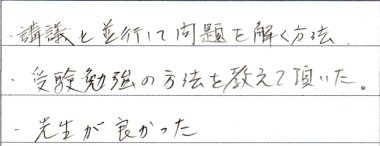 ・講義と並行して問題を解く方法.
・受験勉強の方法を教えて頂いた。
・先生が良かった